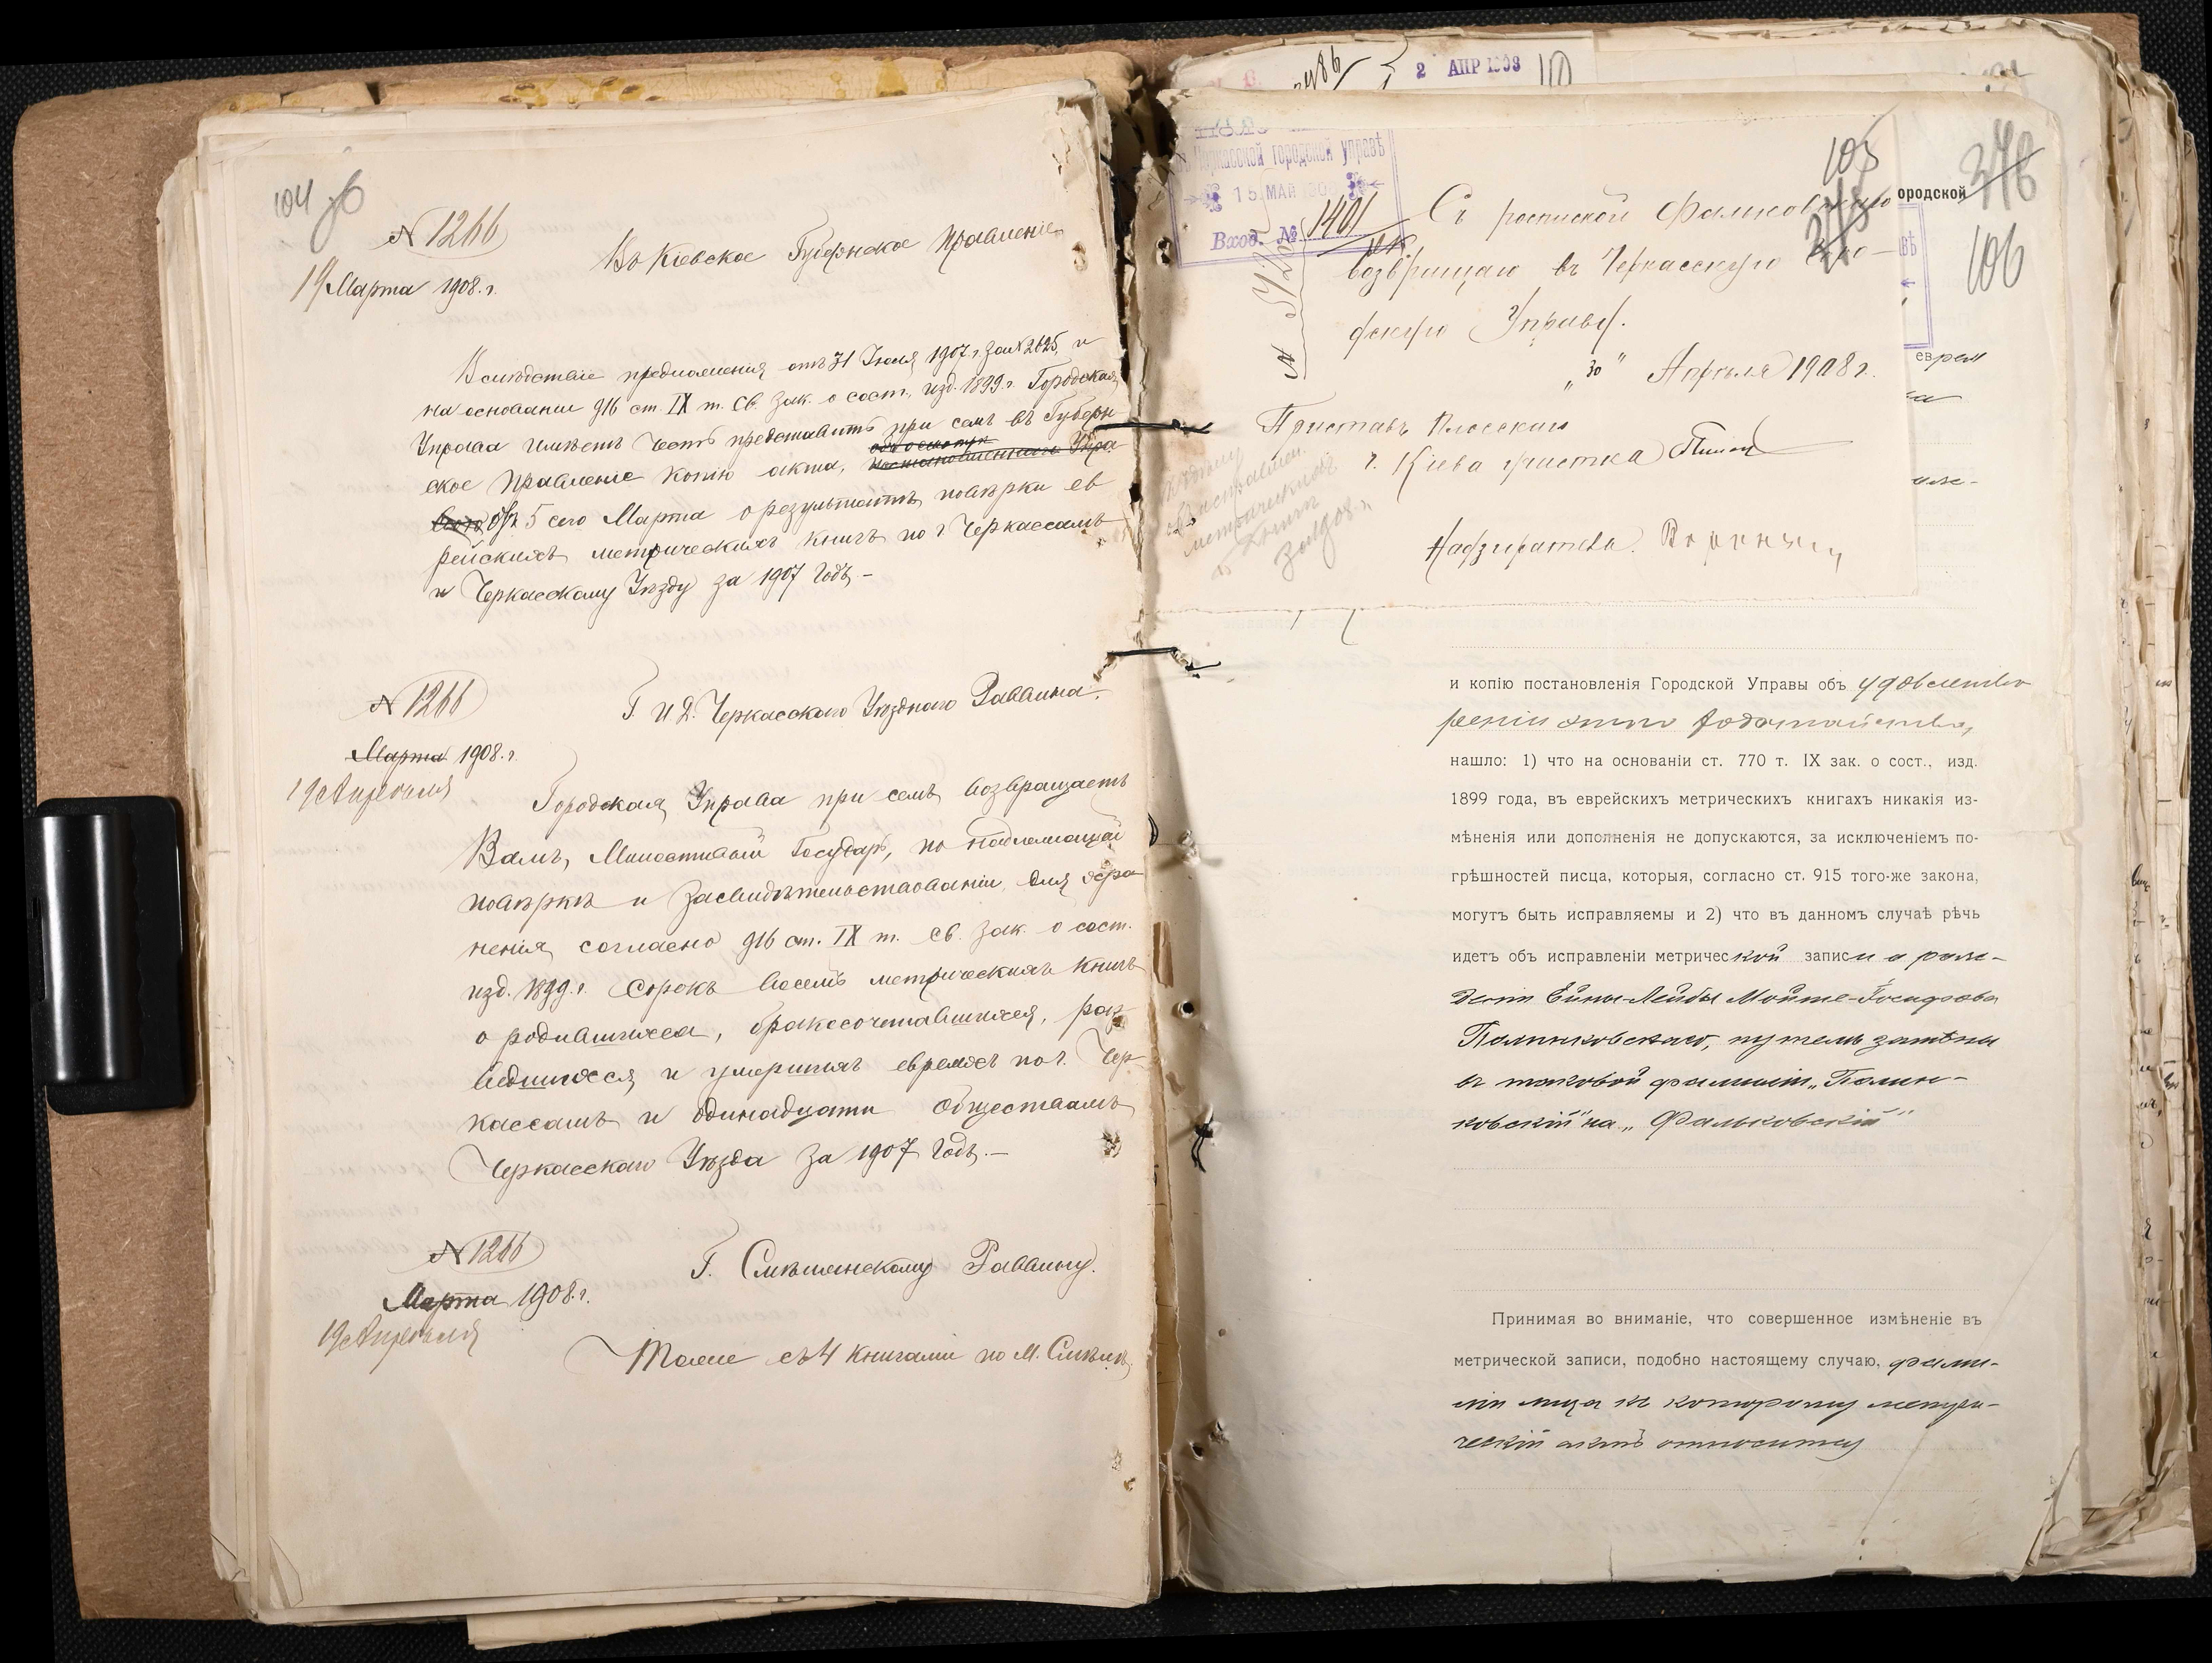 104 об
N 1266
19 Марта 1908. г.
Въ Кіевское Губернское Правленіе
Вслѣдствіе предложенія отъ 31 Іюля 1907. г. за N 2625, и
на основаніи 916 ст. IX т. Св. Зак. о сост., изд. 1899 г. Городская
Управа имѣетъ честь представить при семъ въ Губерн
ское Правленіе копію акта,
отъ 5 сего Марта о результатѣ повѣрки ев
рейскихъ метрическихъ книгъ по г. Черкассамъ
и Черкасскому Уѣзду за 1907 годъ. –
N 1266
Марта 1908. г.
19 Апрѣля
Г. И. Д. Черкасского Уѣздного Раввина.
Городская Управа при семъ возвращаетъ
Вамъ, Милостивый Государь, по надлежащей
повѣркѣ и засвидѣтельствованіи, для хра
ненія, согласно 916 ст. IX т. Св. Зак. о сост.
изд. 1899. г. Сорокъ восемь метрическихъ книгъ
о родившихся, бракосочетавшихся, раз
ведшихся и умершихъ евреяхъ по г. Чер
кассамъ и одинадцати обществамъ
Черкасского Уѣзда за 1907 годъ. –
N 1266
Марта 1908. г.
19 Апрѣля
Г. Смѣлянскому Раввину.
Тоже съ 4 книгами по М. Смѣлѣ,
2 АПР 1908
105
Черкасской городской управѣ
15 МАЙ 1908
Вход. № 1401
Съ роспиской Фальковскаго
возвращаю въ Черкасскую Горо-
дскую Управу.
„30“ Апрѣля 1908 г.
Приставъ Плосскаго
г. Кіева участка
Надзиратель
ородской
376
106
ВѢ
еврея
и копію постановленія Городской Управы объ удовлетво
реніи этого ходатайства,
нашло: 1) что на основаніи ст. 770 т. IX зак. о сост., изд.
1899 года, въ еврейскихъ метрическихъ книгахъ никакія из-
мѣненія или дополненія не допускаются, за исключеніемъ по-
грѣшностей писца, которыя, согласно ст. 915 того-же закона,
могутъ быть исправляемы и 2) что въ данномъ случаѣ рѣчь
идетъ объ исправленіи метрической записи о рож-
деніи Ейны-Лейбы Мойше-Іосифова
Полинковскаго, путемъ замѣны
въ таковой фамиліи „Полин-
ковскій“ на „Фальковскій“
Принимая во вниманіе, что совершенное измѣненіе въ
метрической записи, подобно настоящему случаю, фами-
ліи лица къ которому метри-
ческій актъ относится